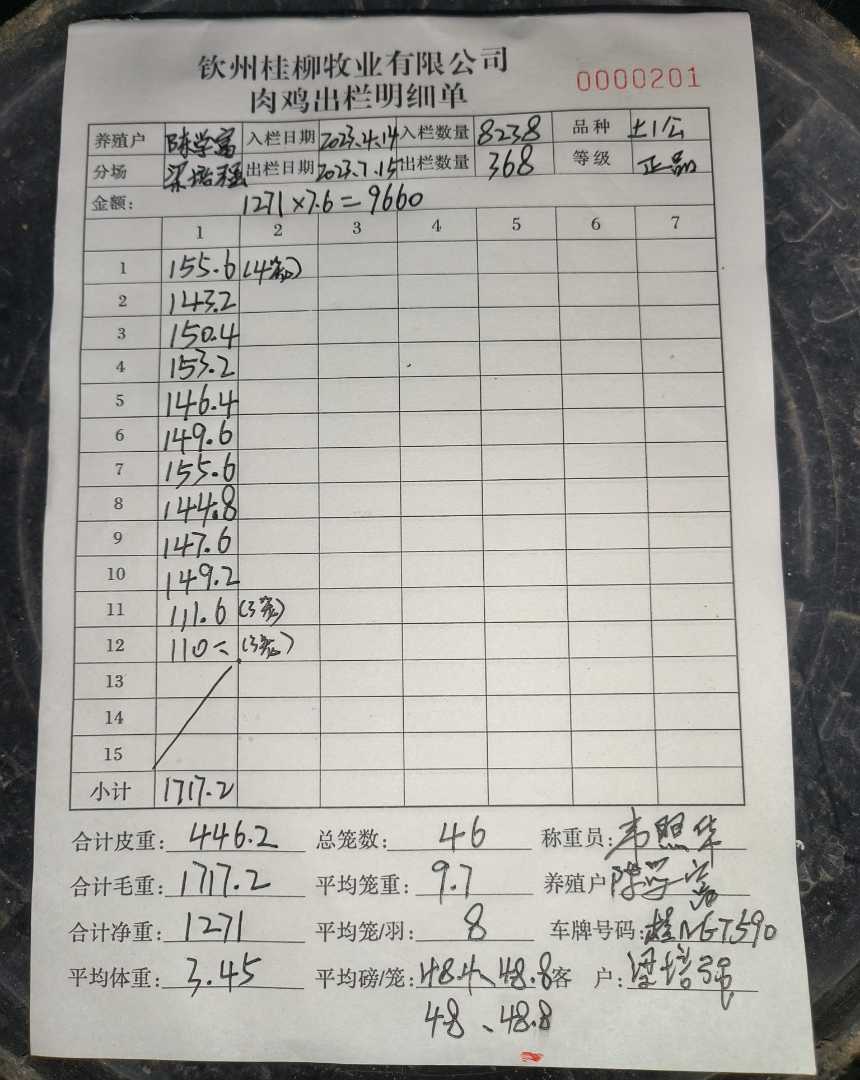 钦州桂柳牧业有限公司
0000201
肉鸡出栏明细单
养殖户 陈学富 入栏日期 2023.4.14 入栏数量 8238 品种 土1公
分场 梁培强 出栏日期 2023.7.15 出栏数量 368 等级 正品
金额: 1271×7.6=9660
1 2 3 4 5 6 7
1 155.6 (4笼)
2 143.2
3 150.4
4 153.2
5 146.4
6 149.6
7 155.6
8 144.8
9 147.6
10 149.2
11 111.6 (3笼)
12 110 (3笼)
13
14
15
小计 1717.2
合计皮重: 446.2 总笼数: 46 称重员: 韦照华
合计毛重: 1717.2 平均笼重: 9.7 养殖户 陈学富
合计净重: 1271 平均笼/羽: 8 车牌号码: 桂NGT590
平均体重: 3.45 平均磅/笼: 48.4、48.8 客 户: 梁培强
48、48.8